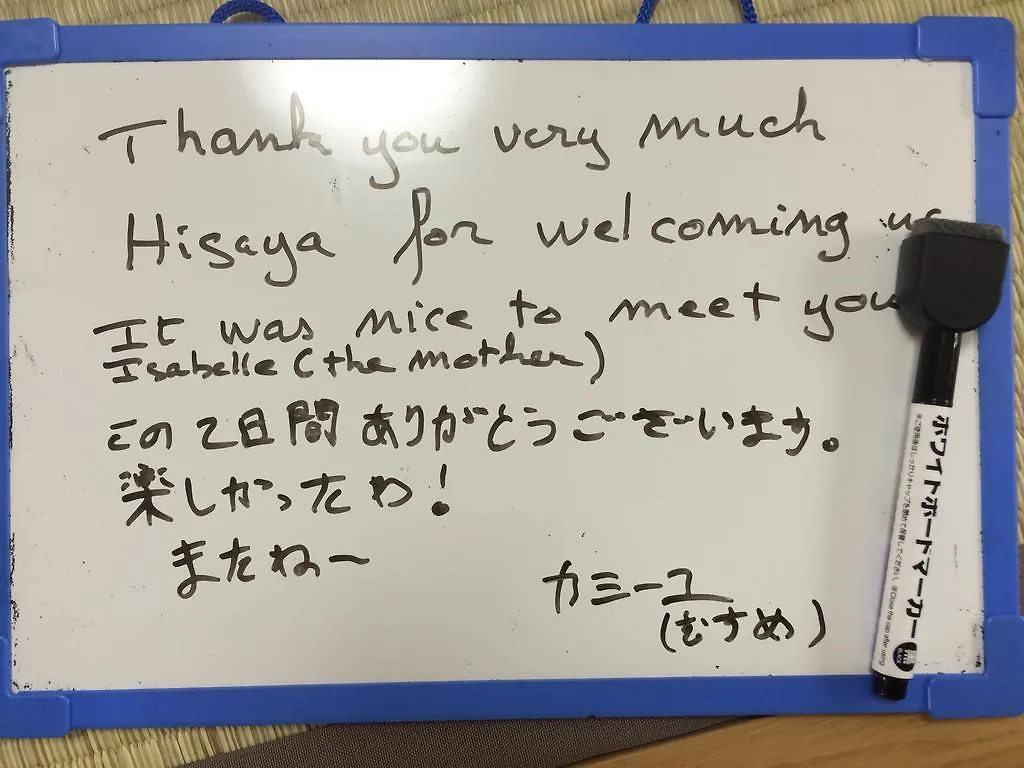 Thank you very much
Hisaya for welcoming us
It was nice to meet you
Isabelle (the mother)
この2日間ありがとうございます。
楽しかったわ!
またねー
カミーユ
(むすめ)
ホワイトボードマーカー